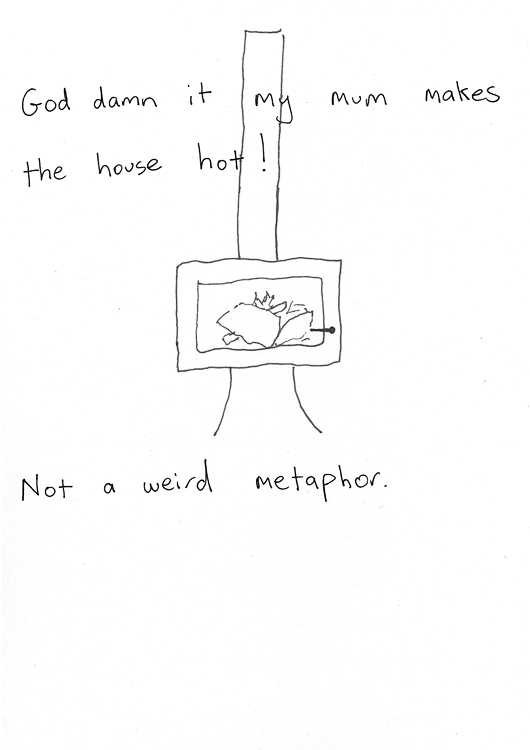 God damn it my mum makes
the house hot!
Not a weird metaphor.